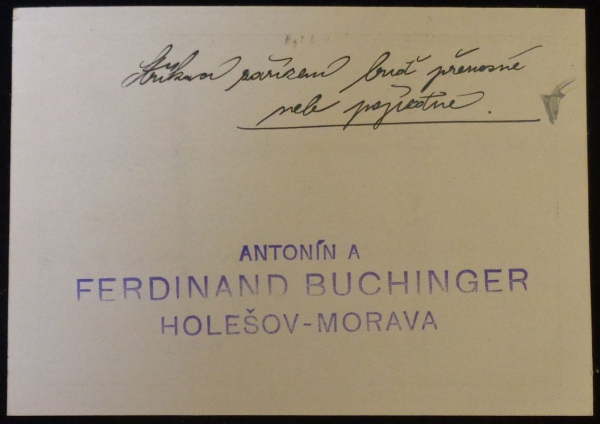 Stříkací zařízení buď přenosné
nebo pojízdné.
ANTONÍN A
FERDINAND BUCHINGER
HOLEŠOV-MORAVA